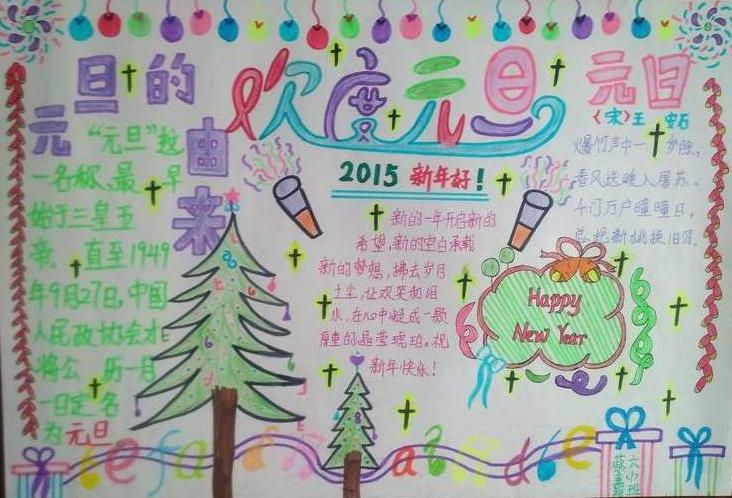 元旦的由来
"元旦"这
一名称,最早
始于三皇五
帝,直至1949
年9月27日,中国
人民政协会才
将公历一月
一日定名
为元旦
欢度元旦
2015 新年好!
新的一年开启新的
希望,新的空白承载
新的梦想,拂去岁月
土尘,让欢笑和泪
水,在心中凝成一颗
厚重的晶莹琥珀。祝
新年快乐!
Happy
New Year
元日
(宋)王安石
爆竹声中一岁除,
春风送暖入屠苏。
千门万户曈曈日,
总把新桃换旧符。